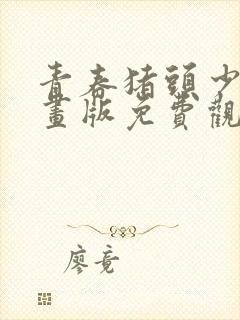 青春猪頭少
畫版免費觀
廖竟